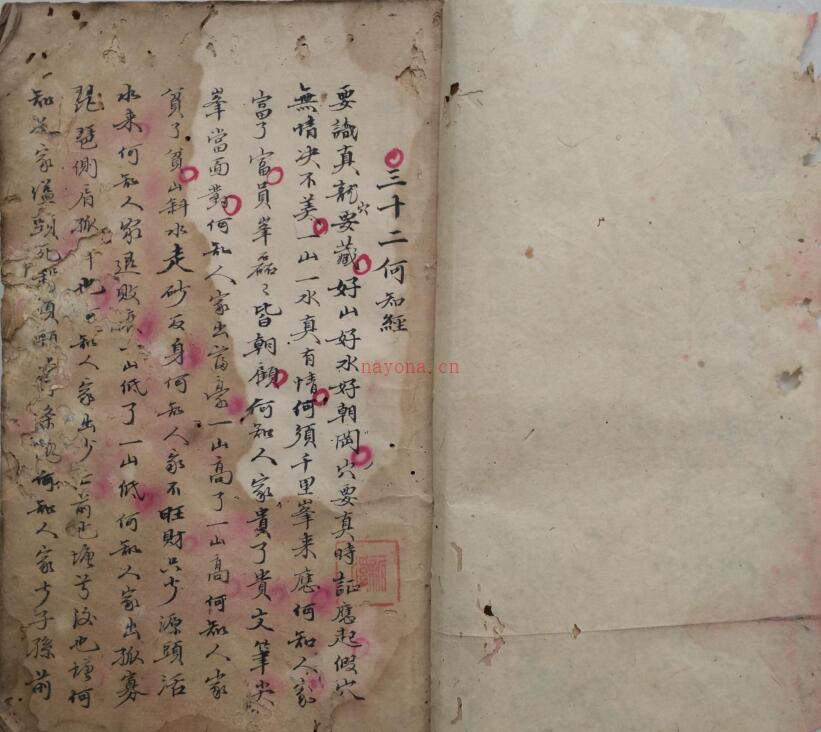 三十二何知經
要識真龍穴要藏好山好水好朝岡穴要真時証應起假穴
無情決不美一山一水真有情何須千里峯来應何知人家
富了富員峯磊〻皆朝顧何知人家貴了貴文筆尖
峯當面對何知人家出富豪一山高了一山高何知人家
貧了貧山斜水走砂反身何知人家不旺財只少源頭活
水来何知人家退敗一山低了一山低何知人家出孤寡
琵琶側肩孤知人家出少亡前也塘兮後也塘何
知人家縊頸死何知人家少子孫前
nayona.cn